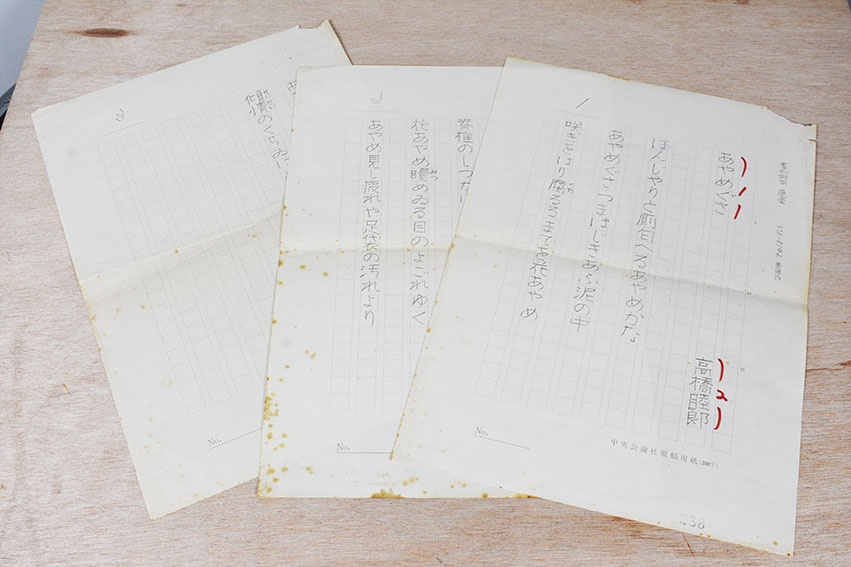 1
あやめぐさ
高橋睦郎
ほんじやりと厠匂へるあやめかな
あやめぐさつまはじきあふ泥の中
咲きをはり腐るるまでを花あやめ
No.
中央公論社原稿用紙
2
脊椎のしつ
花あやめ瞶めゐる目のよごれゆく
みつ
あやめ見し疲れや足袋の汚れより
No.
3
あ
のくらゐ
No.